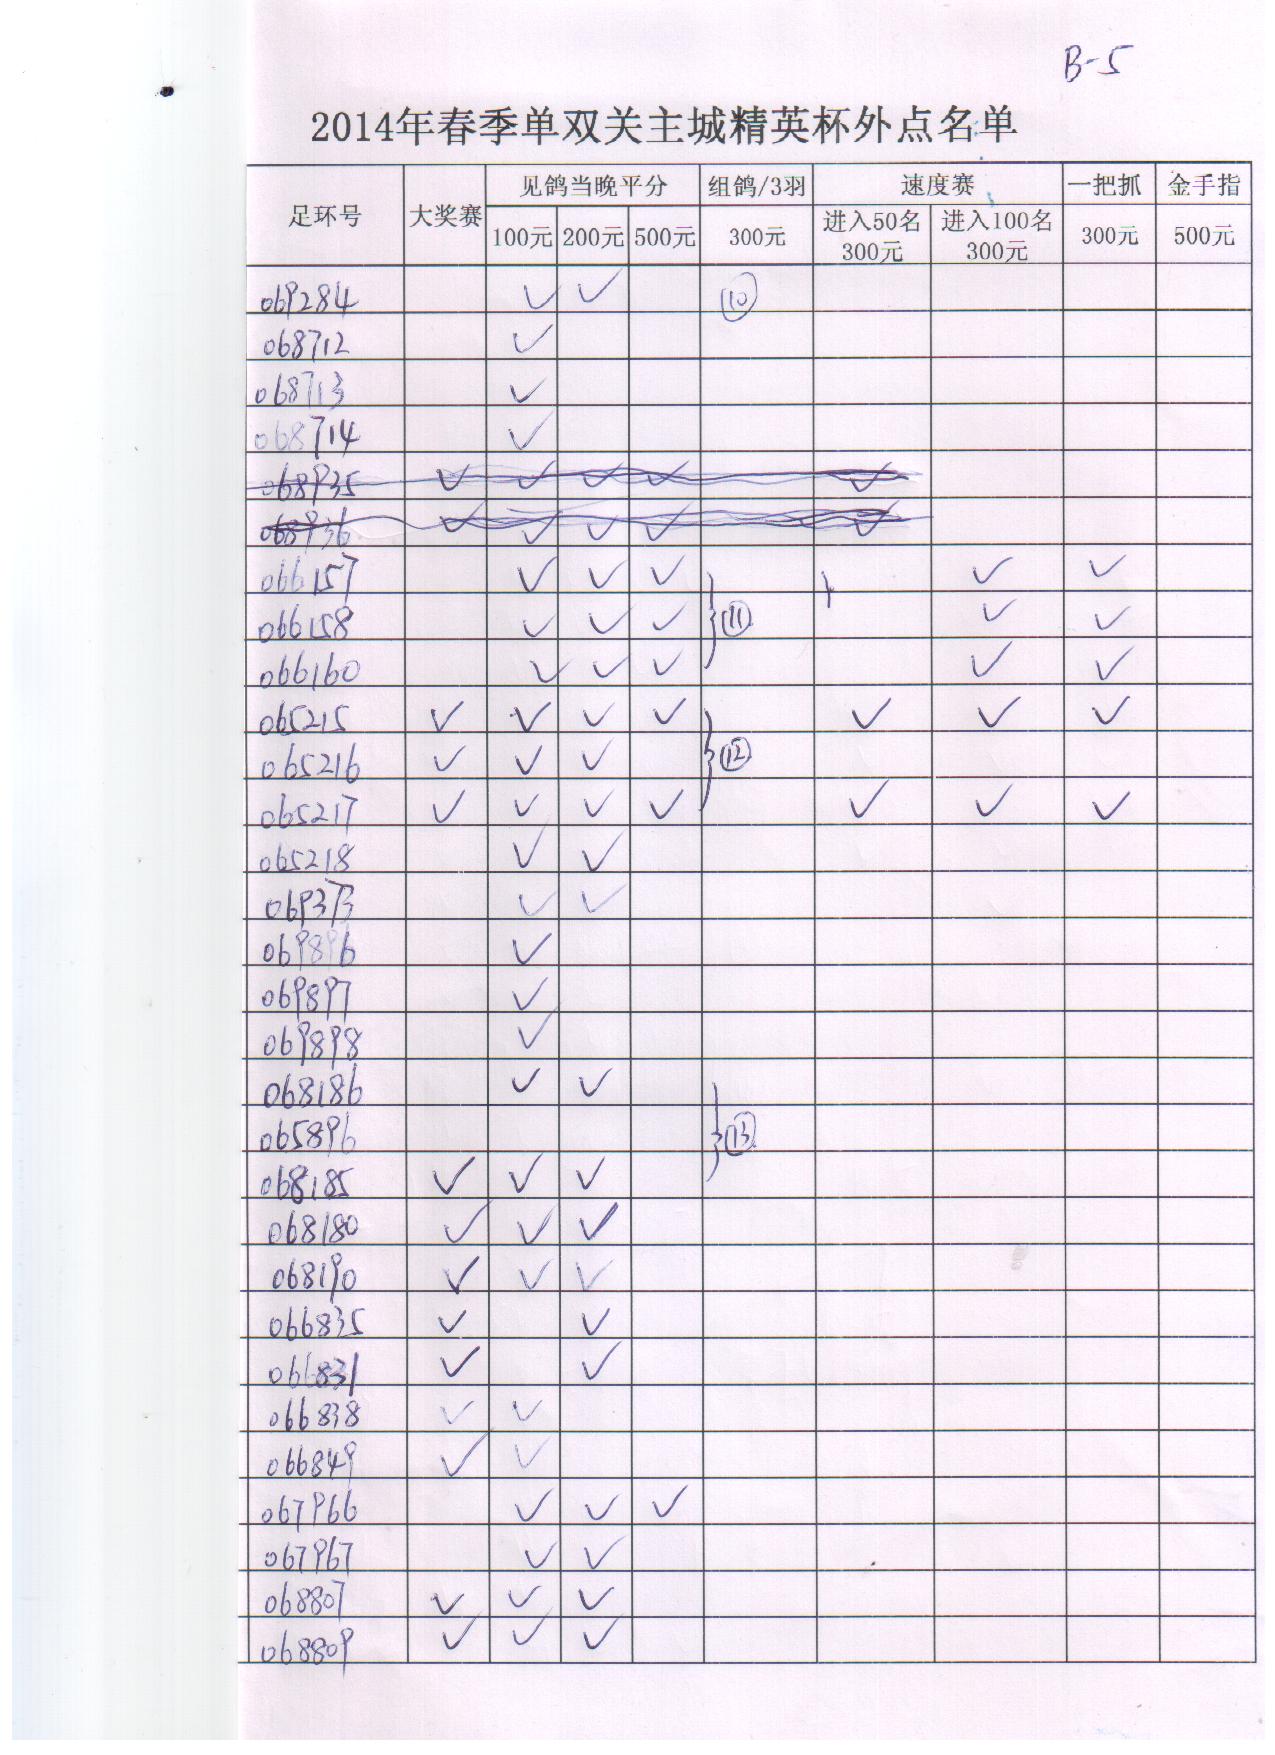 B-5
2014年春季单双关主城精英杯外点名单
足环号 大奖赛 见鸽当晚平分 组鸽/3羽 速度赛 一把抓 金手指
100元 200元 500元 300元 进入50名 300元 进入100名 300元 300元 500元
069284 ✓ ✓ ⑩
068712 ✓
068713 ✓
068714 ✓
068935 ✓ ✓ ✓ ✓ ✓
068936 ✓ ✓ ✓ ✓ ✓
066157 ✓ ✓ ✓ ✓ ✓
066158 ✓ ✓ ✓ ⑪ ✓ ✓
066160 ✓ ✓ ✓ ✓ ✓
065215 ✓ ✓ ✓ ✓ ✓ ✓ ✓
065216 ✓ ✓ ✓ ⑫
065217 ✓ ✓ ✓ ✓ ✓ ✓ ✓
065218 ✓ ✓
069373 ✓ ✓
069896 ✓
069897 ✓
069898 ✓
068186 ✓ ✓
065896 ⑬
068185 ✓ ✓ ✓
068180 ✓ ✓ ✓
068190 ✓ ✓ ✓
066835 ✓ ✓
066831 ✓ ✓
066838 ✓ ✓
066849 ✓ ✓
067966 ✓ ✓ ✓
067967 ✓ ✓
068807 ✓ ✓ ✓
068809 ✓ ✓ ✓